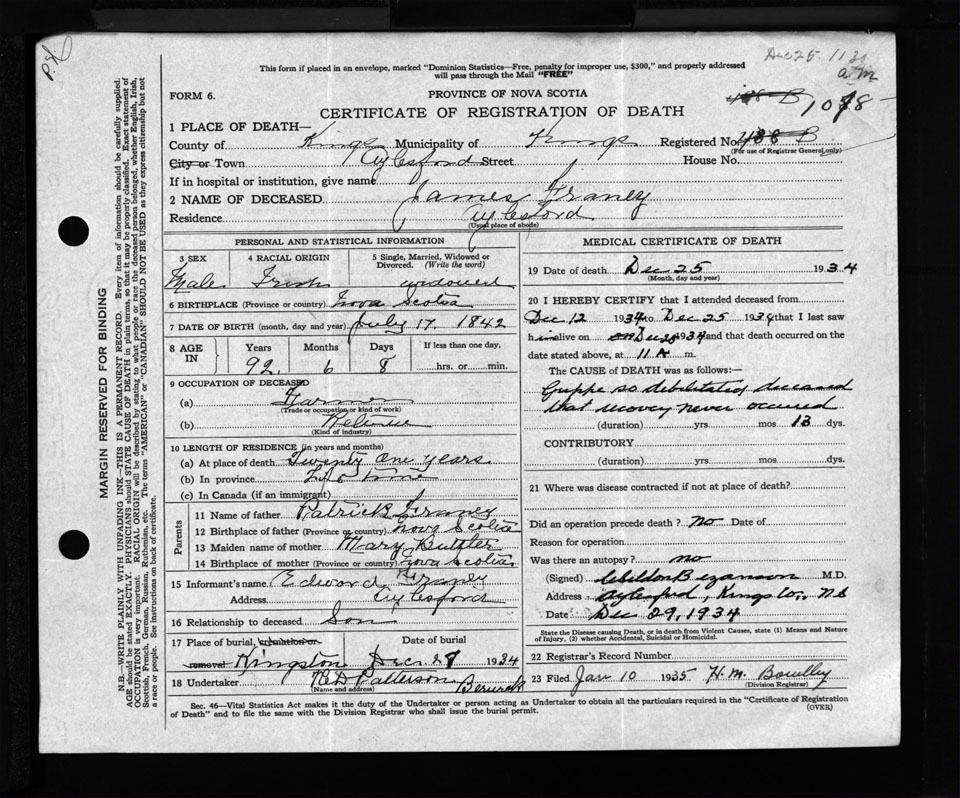 Dec 25 1134
a m
This form if placed in an envelope, marked "Dominion Statistics—Free, penalty for improper use, $300," and properly addressed
will pass through the Mail "FREE"
FORM 6.
PROVINCE OF NOVA SCOTIA
CERTIFICATE OF REGISTRATION OF DEATH
1 PLACE OF DEATH—
County of Kings Municipality of Kings Registered No. 438 B
(For use of Registrar General only)
City or Town Aylesford Street House No.
If in hospital or institution, give name
2 NAME OF DECEASED James Graney
Residence Aylesford
(Usual place of abode)
PERSONAL AND STATISTICAL INFORMATION
3 SEX 4 RACIAL ORIGIN 5 Single, Married, Widowed or
Divorced. (Write the word)
Male Irish widowed
6 BIRTHPLACE (Province or country) Nova Scotia
7 DATE OF BIRTH (month, day and year) July 17. 1842
8 AGE IN Years Months Days If less than one day,
92 6 8 hrs. or min.
9 OCCUPATION OF DECEASED
(a) Farmer
(Trade or occupation or kind of work)
(b)
(Kind of industry)
10 LENGTH OF RESIDENCE (in years and months)
(a) At place of death Twenty One years
(b) In province Life time
(c) In Canada (if an immigrant)
Parents
11 Name of father Patrick Graney
12 Birthplace of father (Province or country) Nova Scotia
13 Maiden name of mother Mary Butler
14 Birthplace of mother (Province or country) Nova Scotia
15 Informant's name Edward Graney
Address Aylesford
16 Relationship to deceased Son
17 Place of burial, cremation or Date of burial
removal Kingston Dec. 27 1934
18 Undertaker Patterson Berwick
(Name and address)
MEDICAL CERTIFICATE OF DEATH
19 Date of death Dec 25 1934
(Month, day and year)
20 I HEREBY CERTIFY that I attended deceased from
Dec 12 1934 to Dec 25 1934 that I last saw
him alive on Dec 1934 and that death occurred on the
date stated above, at 11 A m.
The CAUSE of DEATH was as follows:—
Grippe so debilitating deceased
that recovery never occurred
(duration) yrs mos 13 dys.
CONTRIBUTORY
(duration) yrs. mos. dys.
21 Where was disease contracted if not at place of death?
Did an operation precede death? No Date of
Reason for operation
Was there an autopsy? no
(Signed) Weldon Bezanson M.D.
Address Aylesford, Kings Co., N.S
Date Dec 29, 1934
State the Disease causing Death, or in death from Violent Causes, state (1) Means and Nature
of Injury, (2) whether Accidental, Suicidal or Homicidal.
22 Registrar's Record Number
23 Filed Jan 10 1935 H. M.
(Division Registrar)
Sec. 46—Vital Statistics Act makes it the duty of the Undertaker or person acting as Undertaker to obtain all the particulars required in the "Certificate of Registration
of Death" and to file the same with the Division Registrar who shall issue the burial permit.
(OVER)
MARGIN RESERVED FOR BINDING
N.B.—WRITE PLAINLY WITH UNFADING INK—THIS IS A PERMANENT RECORD. Every item of information should be carefully supplied.
AGE should be stated EXACTLY. PHYSICIANS should STATE CAUSE OF DEATH in plain terms, so that it may be properly classified. Exact statement of
OCCUPATION is very important. RACIAL ORIGIN will be described by stating to what people or race the deceased person belonged, whether English, Irish,
Scottish, French, German, Russian, Ruthenian, etc. The terms "AMERICAN" or "CANADIAN" SHOULD NOT BE USED as they express citizenship but not
a race or people. See instructions on back of certificate.